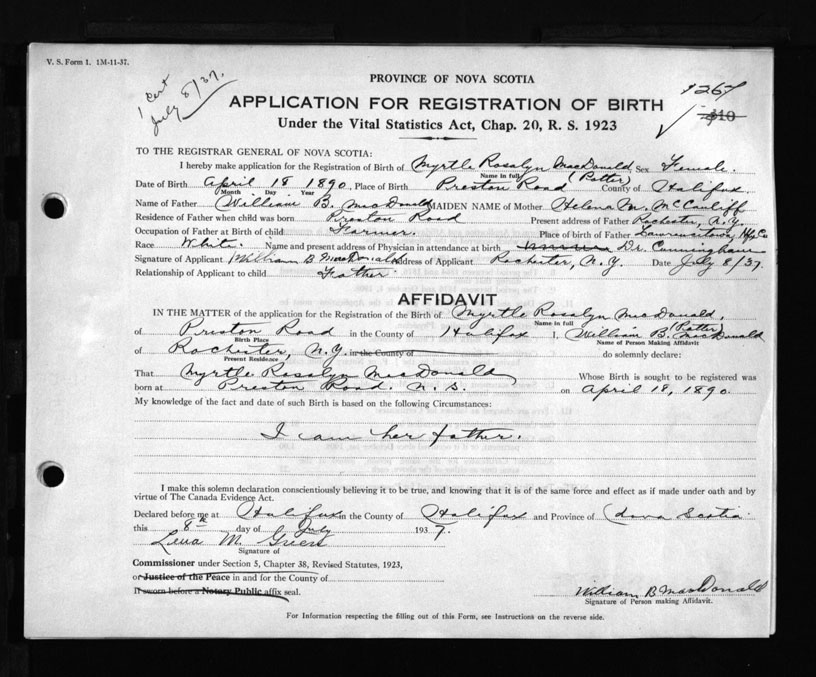 V. S. Form 1. 1M-11-37.
1 Cert
July 8/37.
PROVINCE OF NOVA SCOTIA
1267
$10
APPLICATION FOR REGISTRATION OF BIRTH
Under the Vital Statistics Act, Chap. 20, R. S. 1923
TO THE REGISTRAR GENERAL OF NOVA SCOTIA:
I hereby make application for the Registration of Birth of Myrtle Rosalyn MacDonald, Sex Female.
Name in full (Potter)
Date of Birth April 18 1890, Place of Birth Preston Road County of Halifax.
Month Day Year
Name of Father William B. MacDonald MAIDEN NAME of Mother Helena M. McCauliff
Residence of Father when child was born Preston Road Present address of Father Rochester, N.Y.
Occupation of Father at Birth of child Farmer. Place of birth of Father Lawrencetown, Hfx Co
Race White. Name and present address of Physician in attendance at birth Dr. Cunningham
Signature of Applicant William B MacDonald Address of Applicant Rochester, N.Y. Date July 8/37.
Relationship of Applicant to child Father.
AFFIDAVIT
IN THE MATTER of the application for the Registration of the Birth of Myrtle Rosalyn MacDonald,
Name in full (Potter)
of Preston Road in the County of Halifax I, William B. MacDonald
Birth Place Name of Person Making Affidavit
of Rochester, N.Y. in the County of do solemnly declare:
Present Residence
That Myrtle Rosalyn MacDonald Whose Birth is sought to be registered was
born at Preston Road. N.S. on April 18, 1890.
My knowledge of the fact and date of such Birth is based on the following Circumstances:
I am her father.
I make this solemn declaration conscientiously believing it to be true, and knowing that it is of the same force and effect as if made under oath and by
virtue of The Canada Evidence Act.
Declared before me at Halifax in the County of Halifax and Province of Nova Scotia
this 8th day of July 1937.
Lena M. Green
Signature of
Commissioner under Section 5, Chapter 38, Revised Statutes, 1923,
or Justice of the Peace in and for the County of
If sworn before a Notary Public affix seal.
William B MacDonald
Signature of Person making Affidavit.
For Information respecting the filling out of this Form, see Instructions on the reverse side.